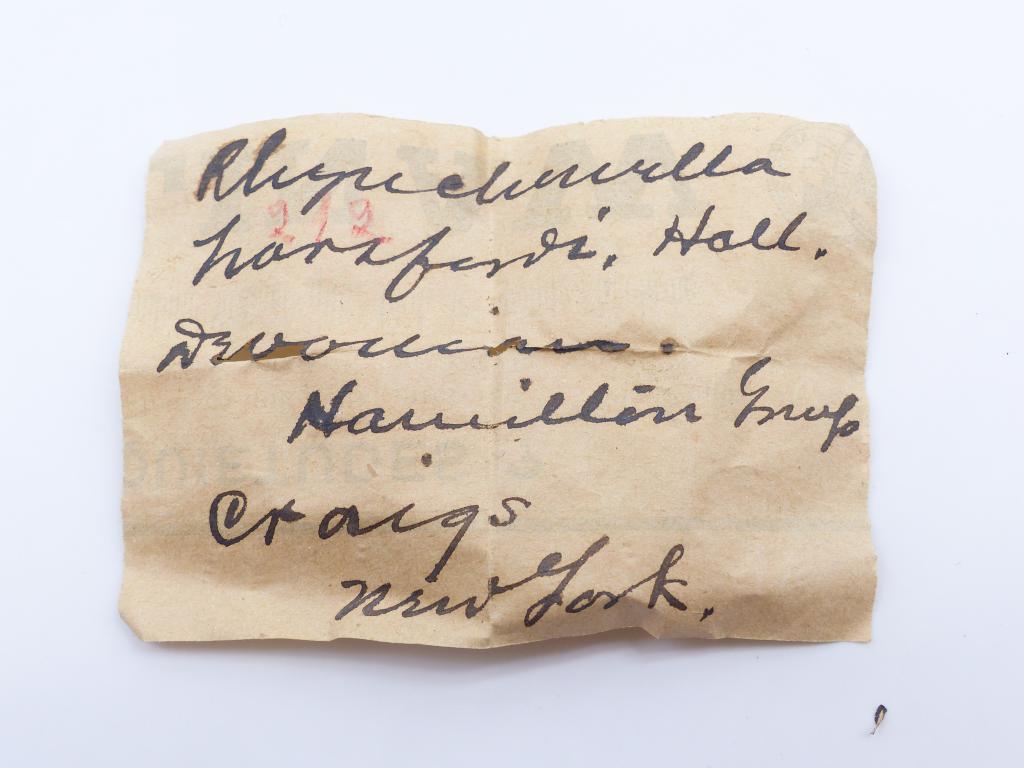 Rhynchonella
212
horsfordi, Hall.
Devonian.
Hamilton Group
Craigs
New York.